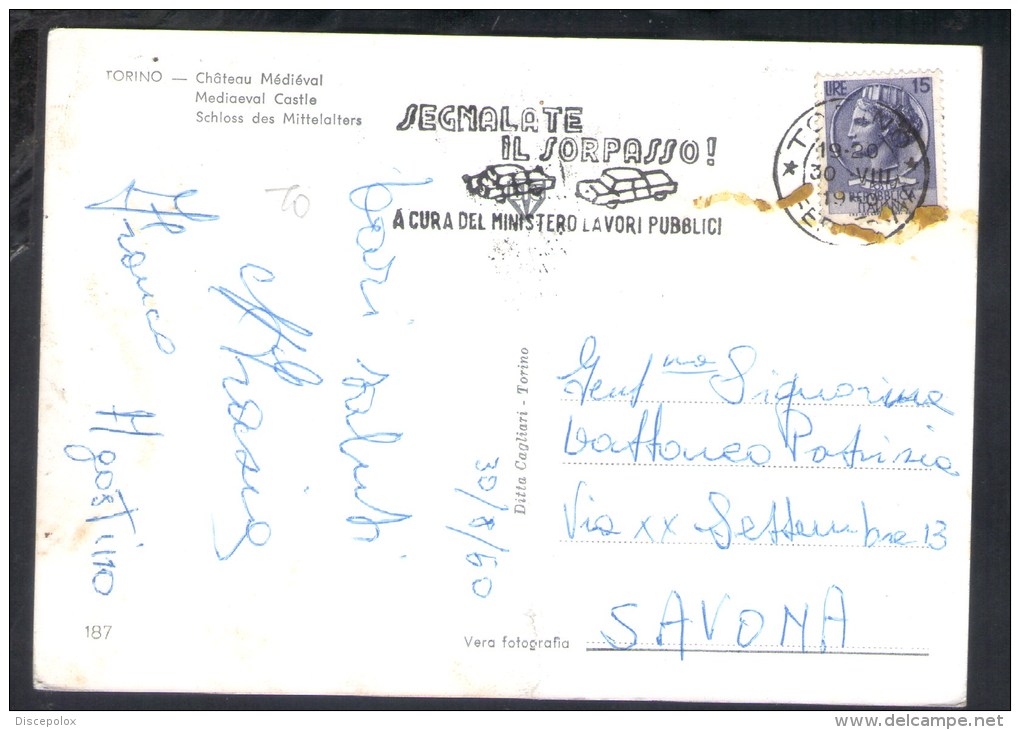 TORINO — Château Médiéval
Mediaeval Castle
Schloss des Mittelalters
SEGNALATE
IL SORPASSO!
A CURA DEL MINISTERO LAVORI PUBBLICI
LIRE 15
TORINO
19-20
30 VIII
19
TO
Cari saluti
Franco
Agostino
30/8/60
Ditta Cagliari - Torino
Gent ma Signorina
Vattoneo Patrizia
Via XX Settembre 13
SAVONA
187
Vera fotografia
Discepolox
www.delcampe.net